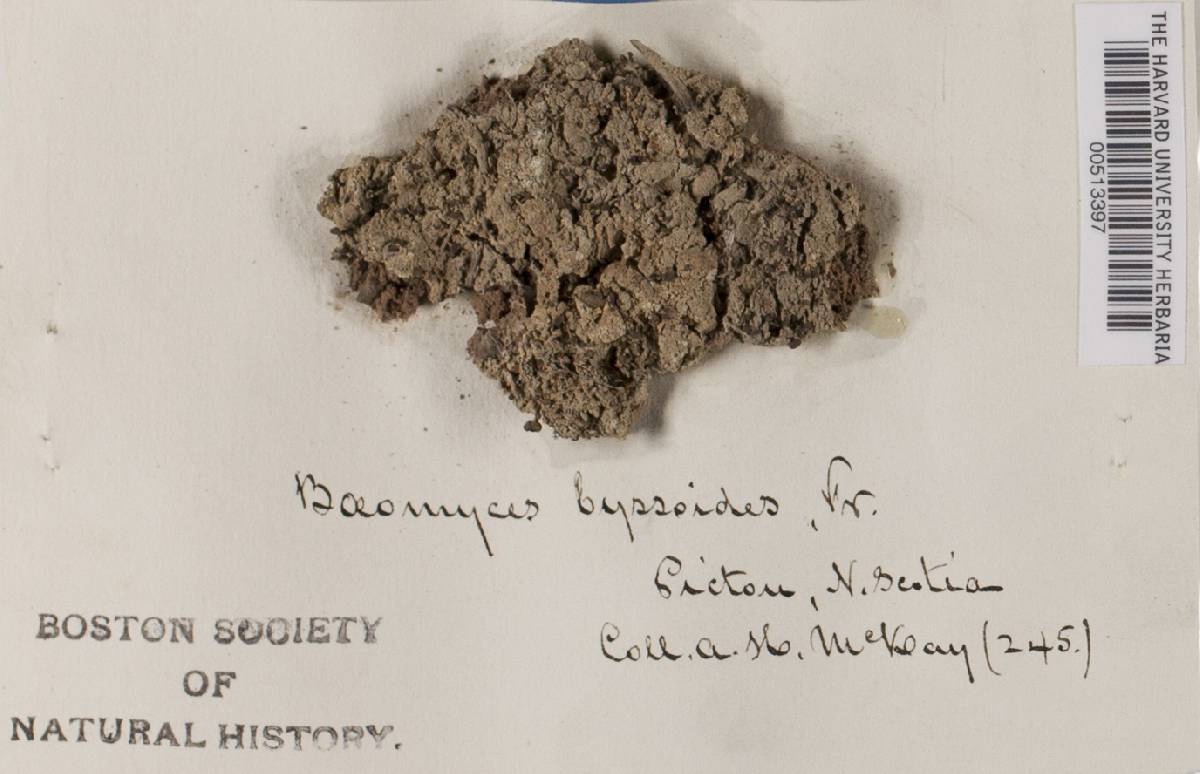 THE HARVARD UNIVERSITY HERBARIA
00513397
Bæomyces byssoides, Fr.
Pictou, N. Scotia
Coll. A. H. McKay (245.)
BOSTON SOCIETY
OF
NATURAL HISTORY.